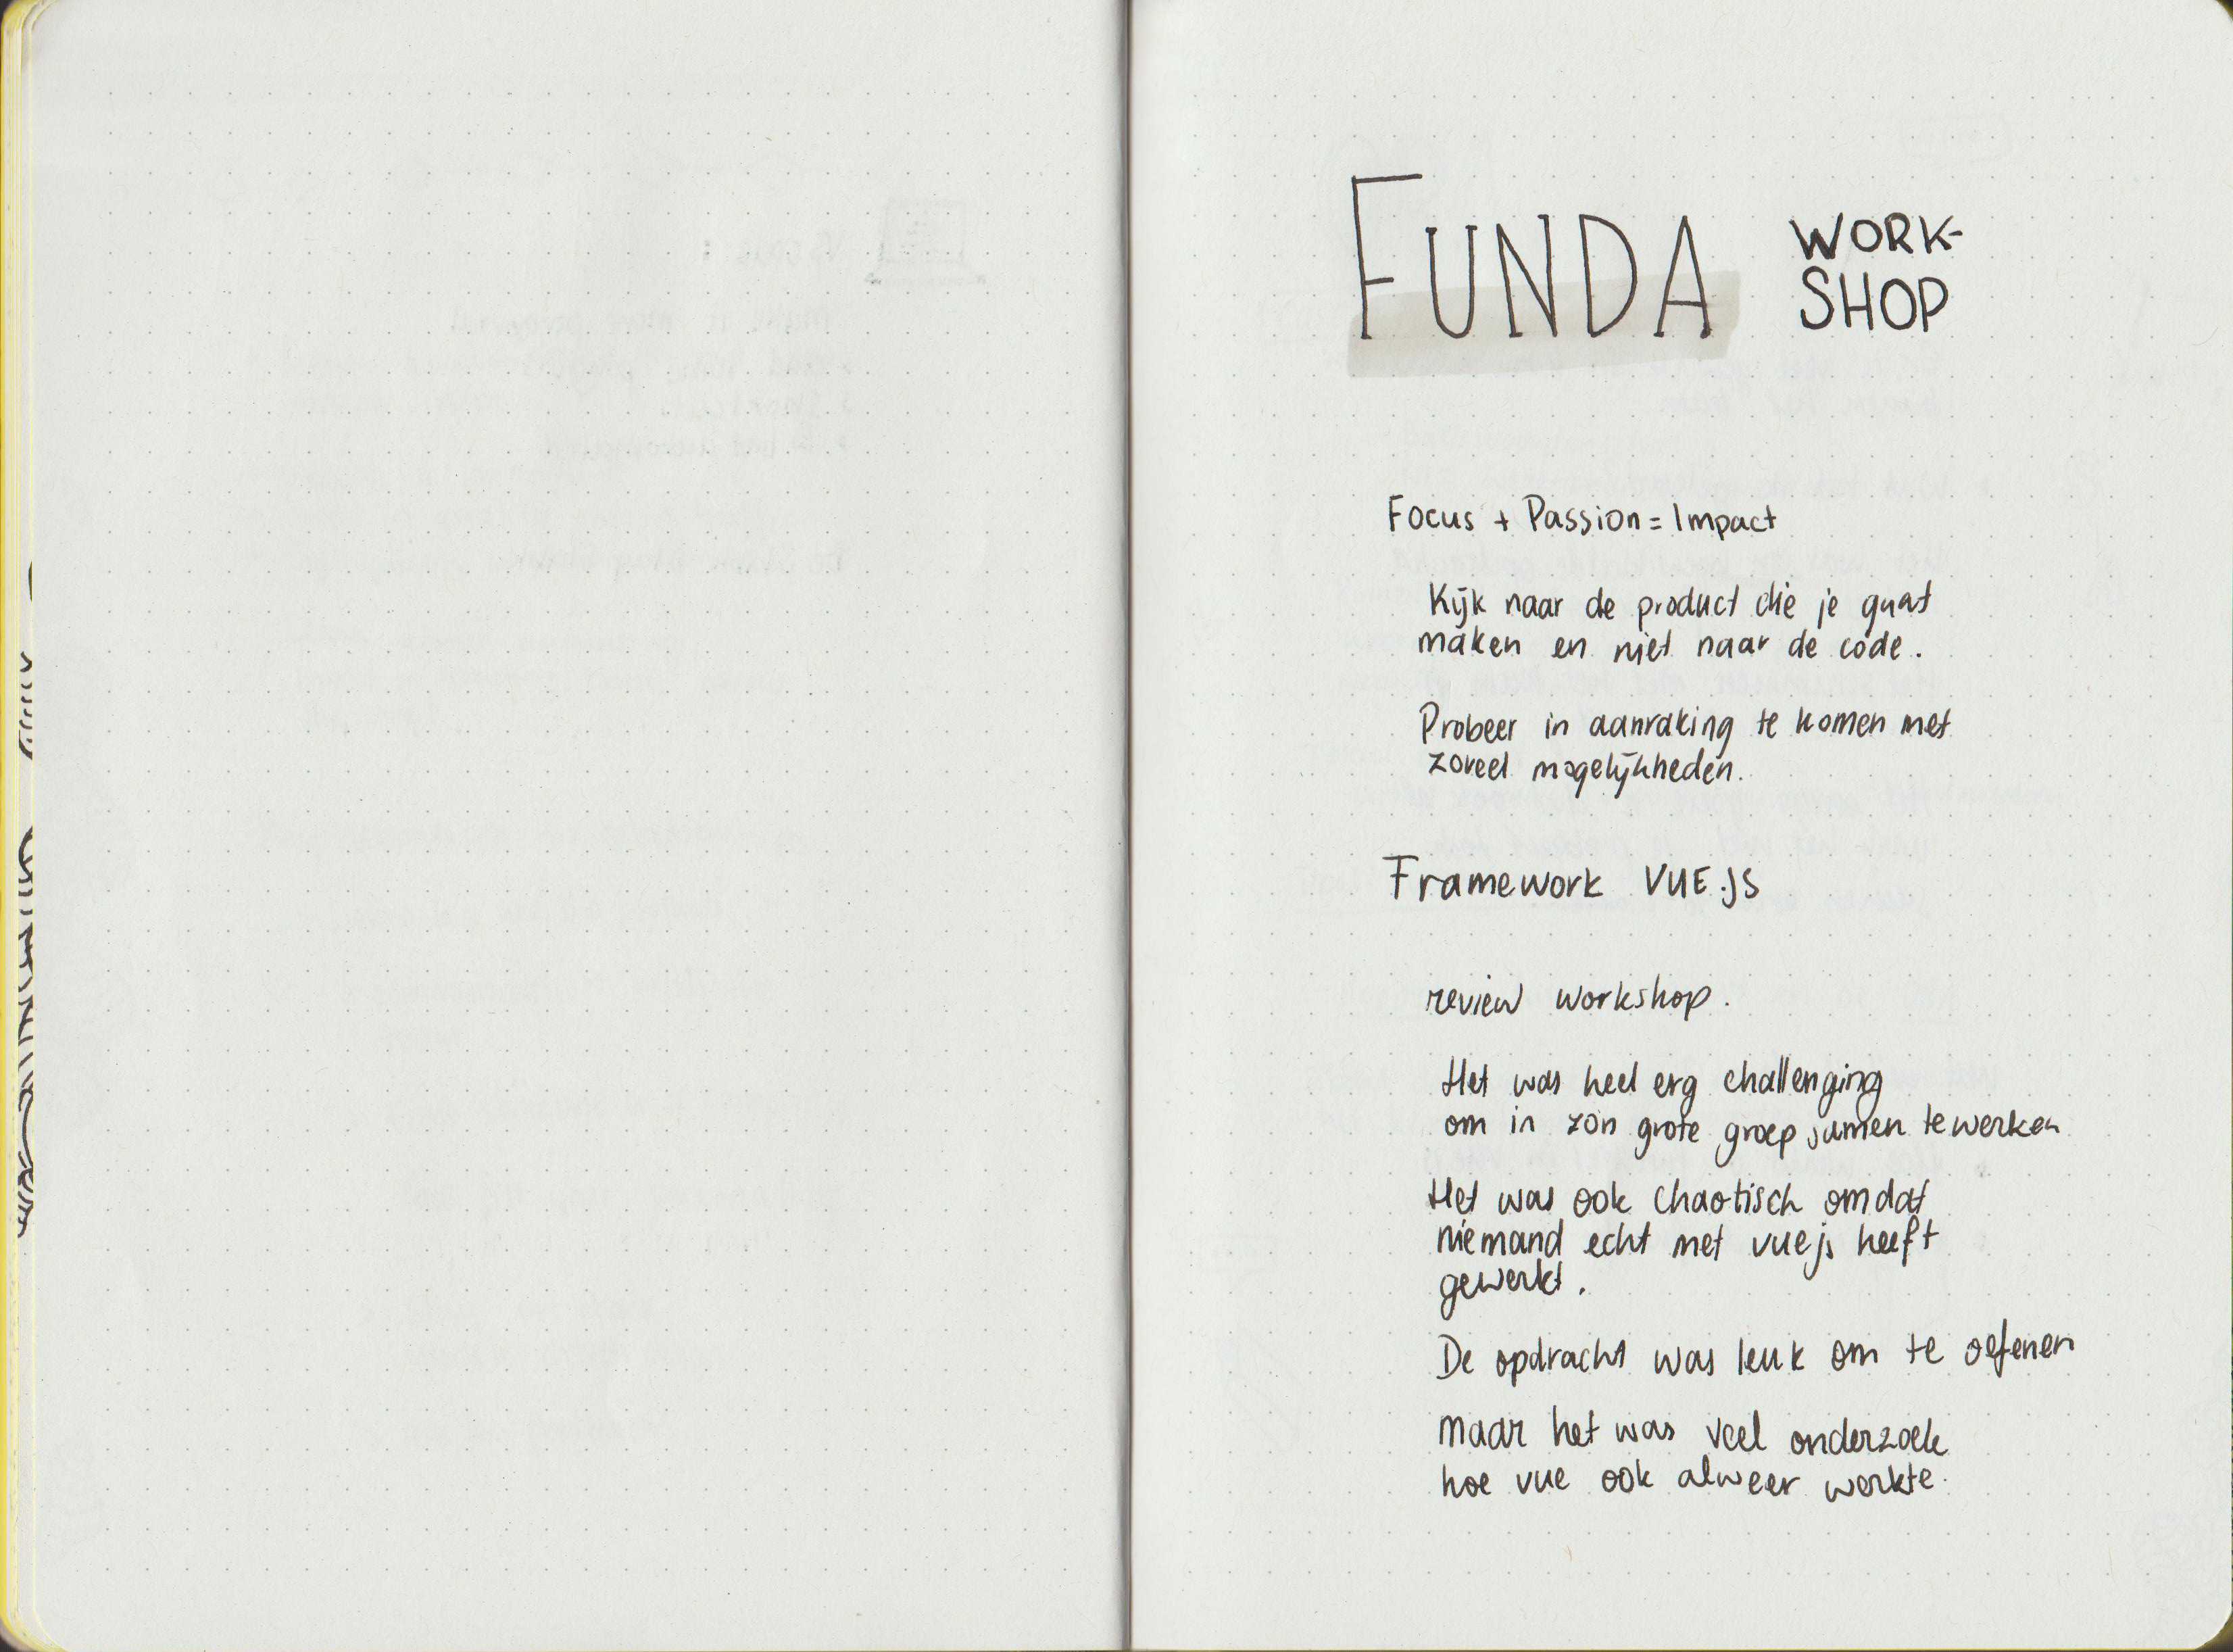 FUNDA WORK-
SHOP
Focus + Passion = Impact
Kijk naar de product die je gaat
maken en niet naar de code.
Probeer in aanraking te komen met
zoveel mogelijkheden.
Framework VUE.JS
review workshop.
Het was heel erg challenging
om in zon grote groep samen te werken
Het was ook chaotisch omdat
niemand echt met vuejs heeft
gewerkt.
De opdracht was leuk om te oefenen
maar het was veel onderzoek
hoe vue ook alweer werkte.